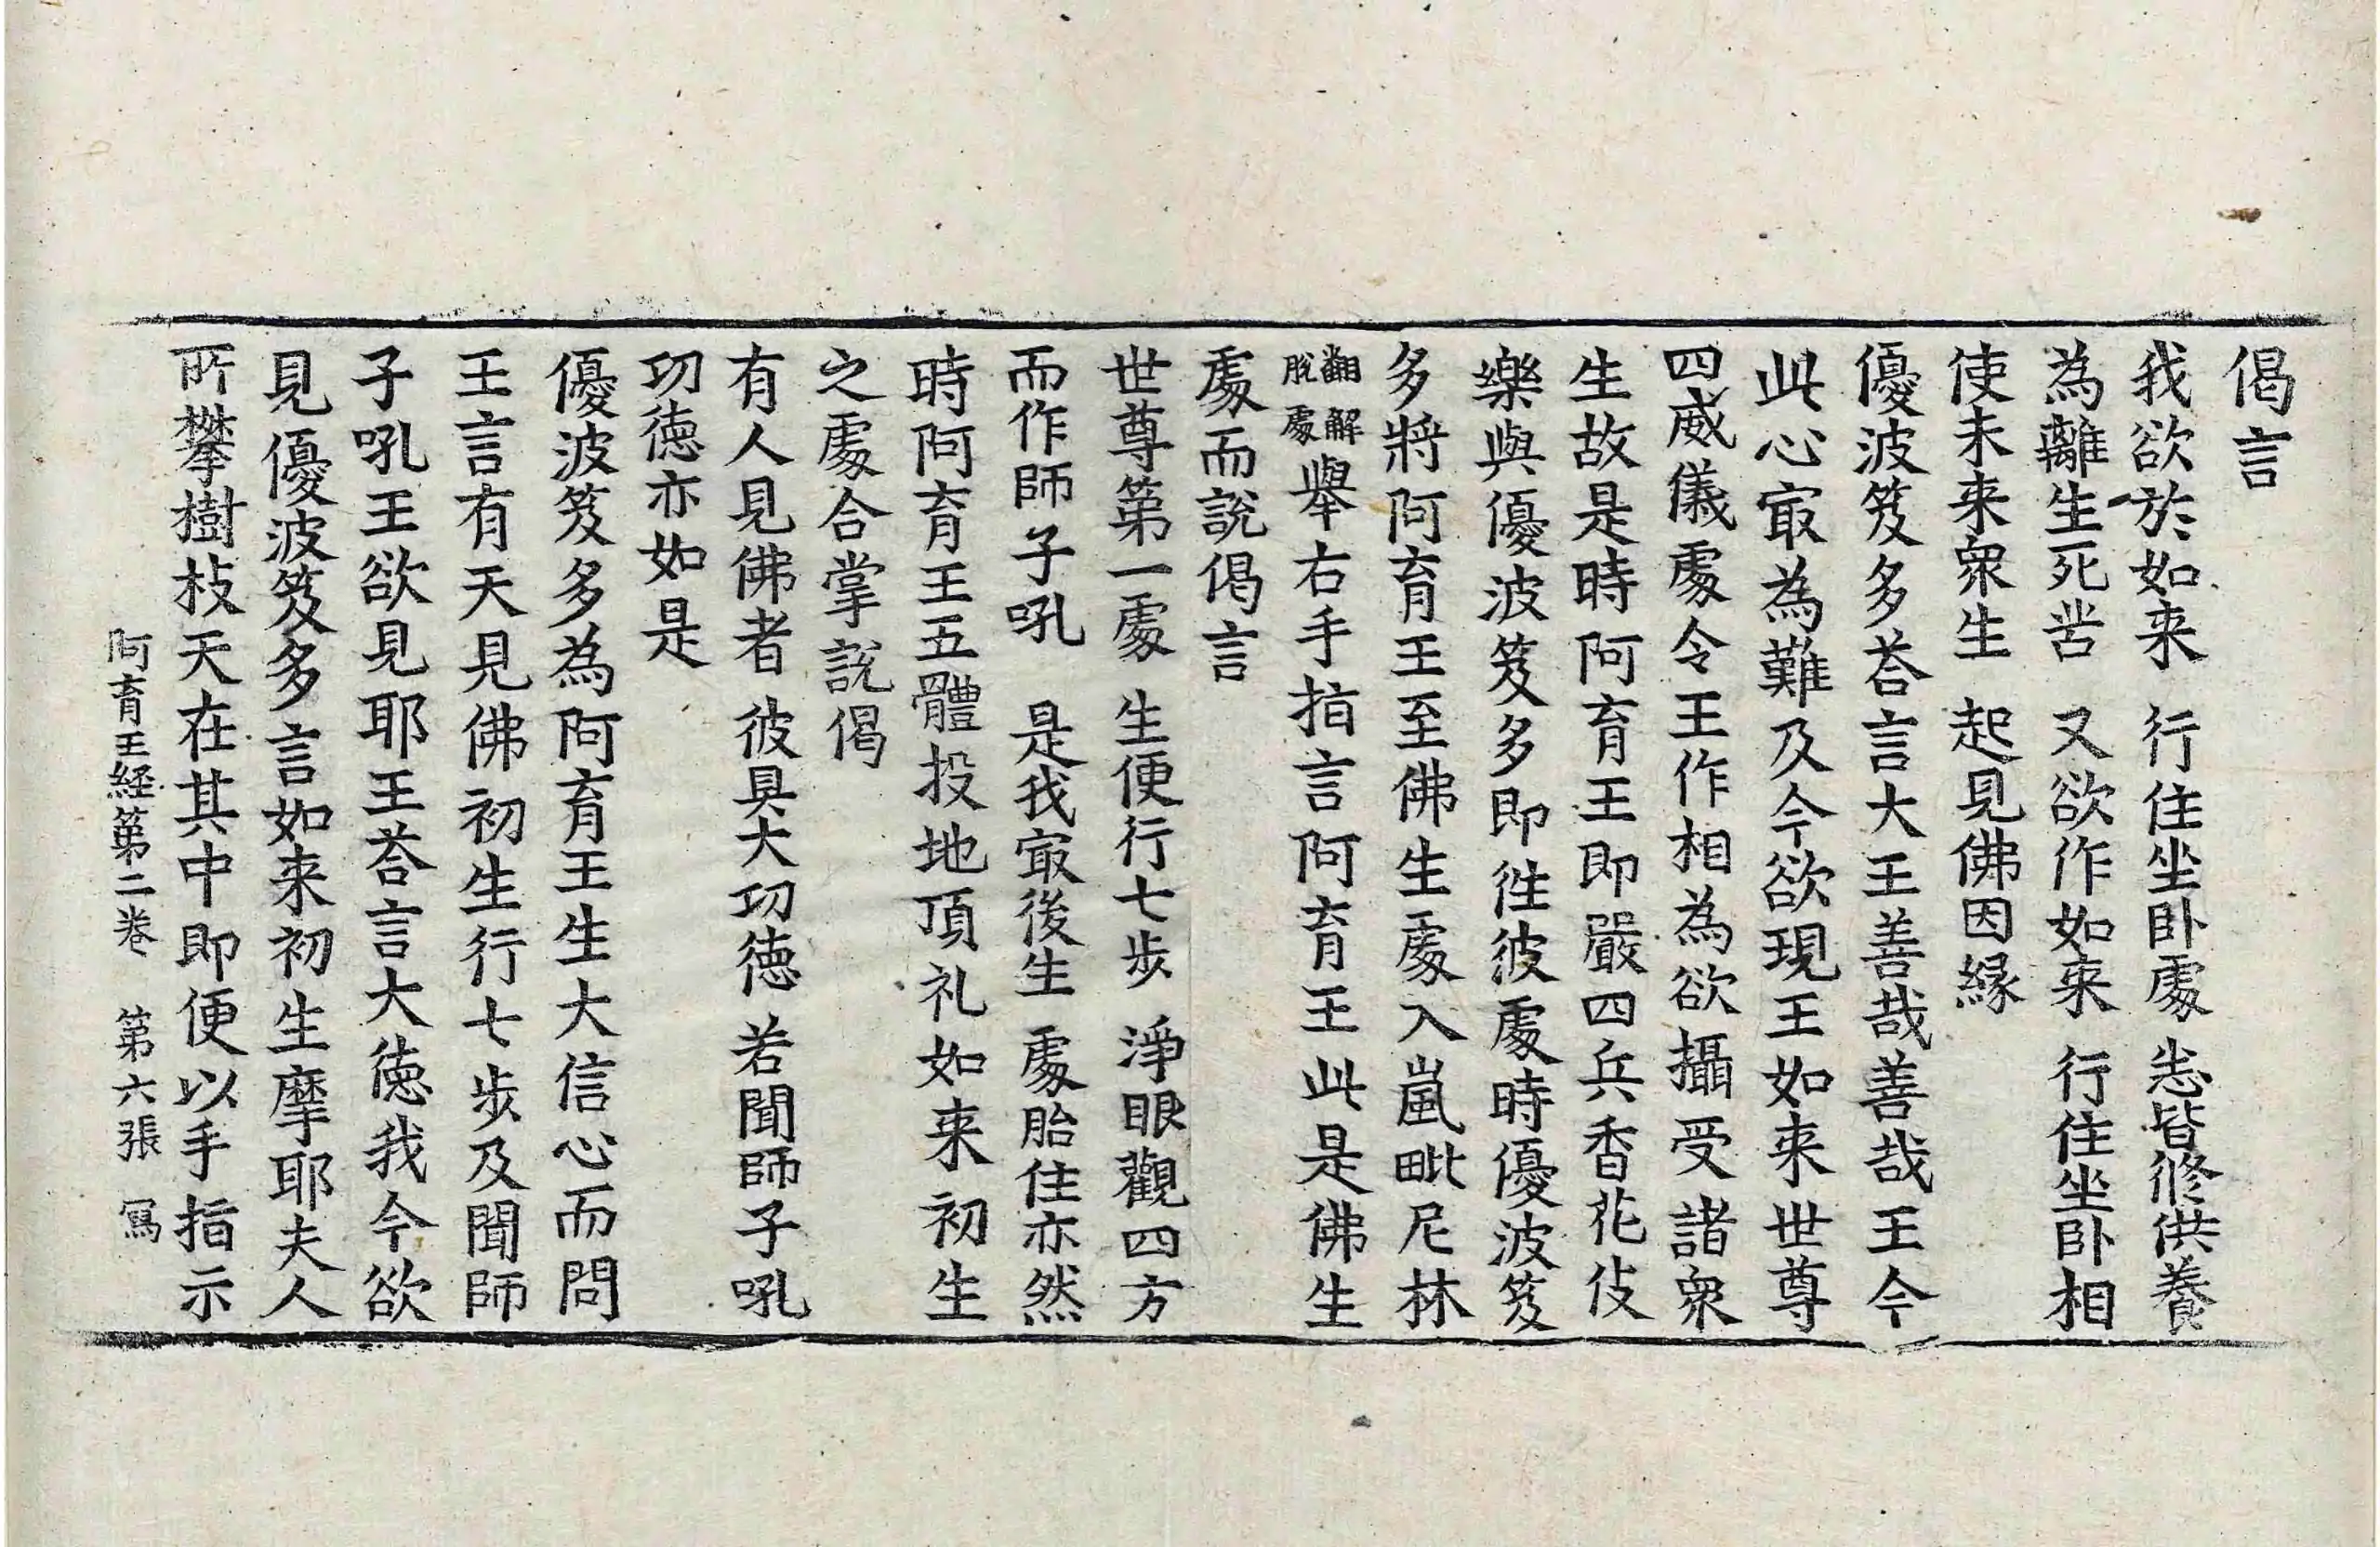 偈言
我欲於如来　行住坐卧處　悉皆修供養
為離生死苦　又欲作如来　行住坐卧相
使未来衆生　起見佛因緣
優波笈多荅言大王善哉善哉王今
此心㝡為難及今欲現王如来世尊
四威儀處令王作相為欲攝受諸衆
生故是時阿育王即嚴四兵香花伎
樂與優波笈多即徃彼處時優波笈
多將阿育王至佛生處入嵐毗尼林
翻解脫處舉右手指言阿育王此是佛生
處而說偈言
世尊第一處　生便行七步　淨眼觀四方
而作師子吼　是我㝡後生　處胎住亦然
時阿育王五體投地頂礼如来初生
之處合掌說偈
有人見佛者　彼具大功徳　若聞師子吼
功徳亦如是
優波笈多為阿育王生大信心而問
王言有天見佛初生行七步及聞師
子吼王欲見耶王荅言大徳我今欲
見優波笈多言如来初生摩耶夫人
所攀樹枝天在其中即便以手指示
阿育王経第二卷　第六張　寫